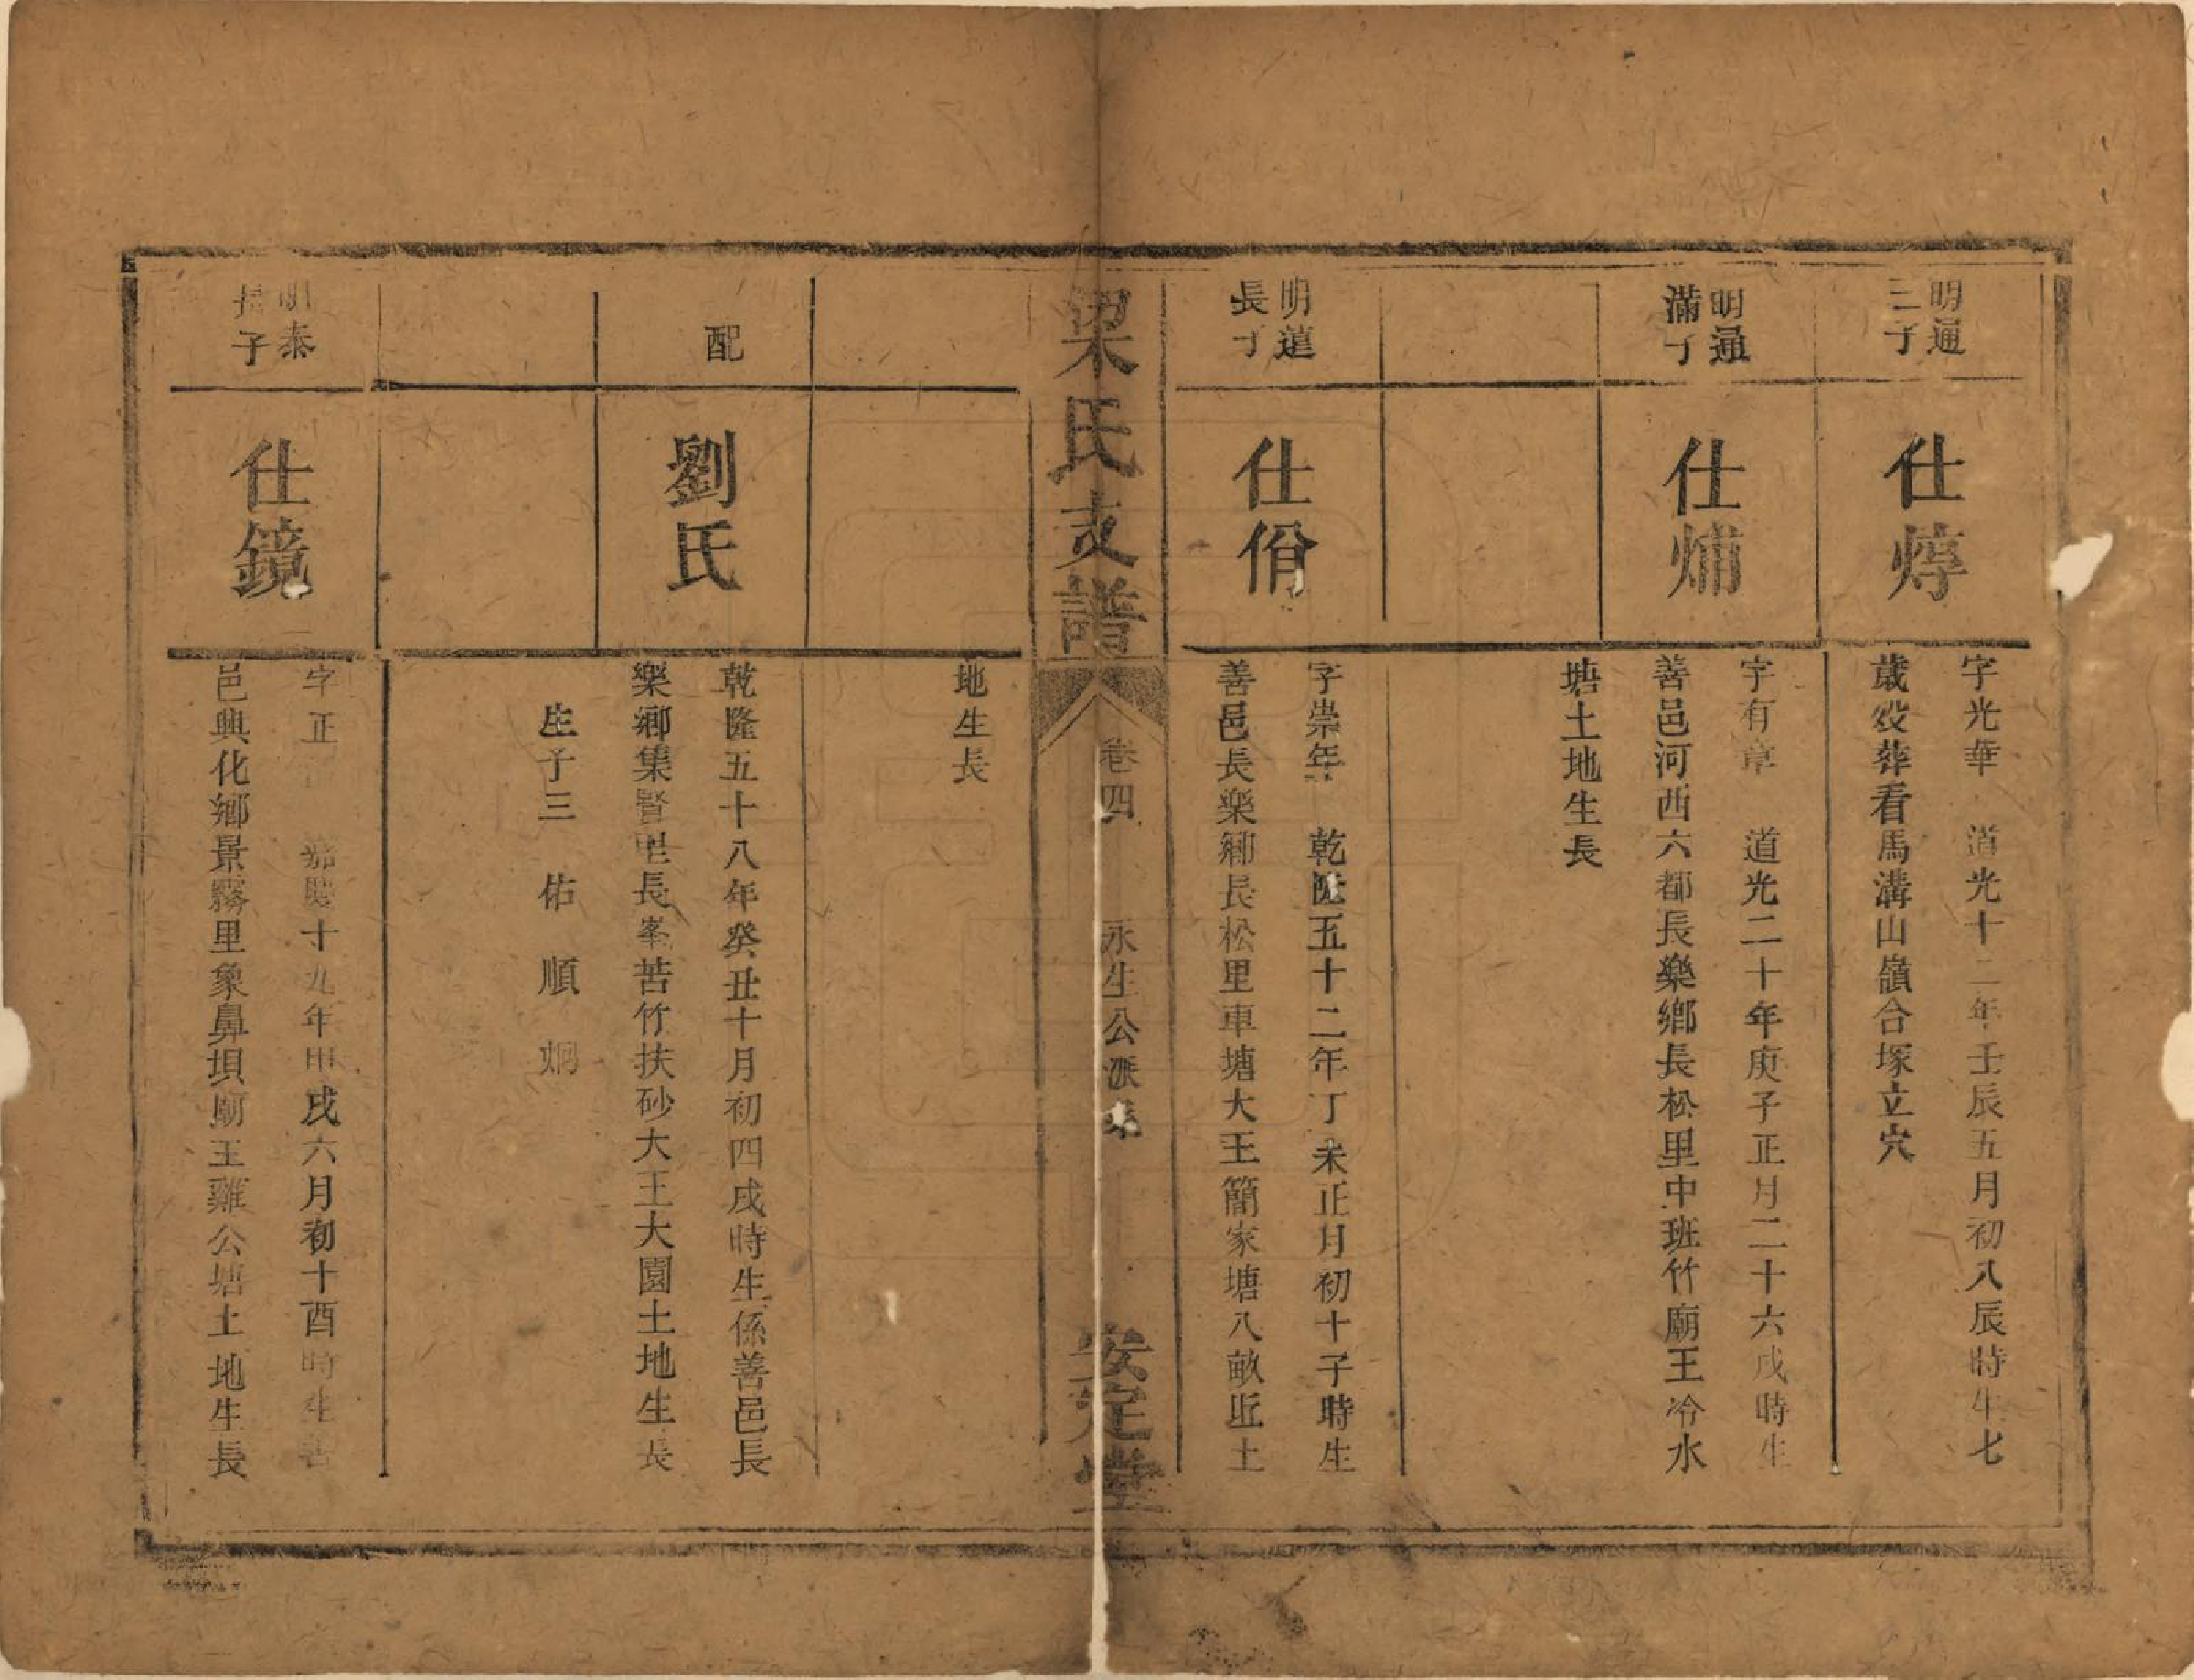 明通
三子
仕焞
字光華 道光十二年壬辰五月初八辰時生七
歲歿葬看馬溝山嶺合塚立穴
明通
滿子
仕烳
字有章 道光二十年庚子正月二十六戌時生
善邑河西六都長樂鄉長松里中班竹廟王冷水
塘土地生長
明蓮
長子
仕佾
字崇年 乾隆五十二年丁未正月初十子時生
善邑長樂鄉長松里車塘大王簡家塘八畝坵土
梁氏支譜
卷四
永生公派系
安定堂
地生長
配
劉氏
乾隆五十八年癸丑十月初四戌時生係善邑長
樂鄉集賢里長峯苦竹扶砂大王大園土地生長
生子三 佑 順 炯
明泰
長子
仕鏡
字正 嘉慶十九年甲戌六月初十酉時生善
邑興化鄉景霧里象鼻垻廟王雞公塘土地生長